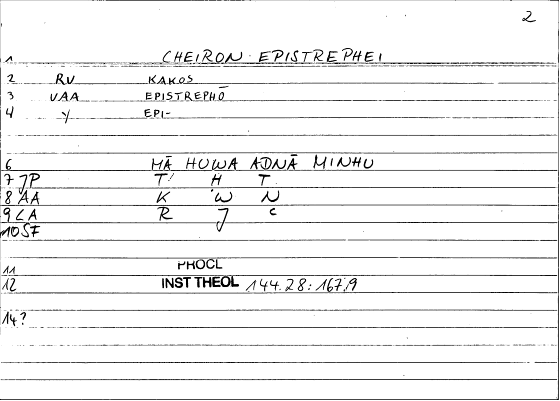 2
1 CHEIRON EPISTREPHEI
2 RU KAKOS
3 VAA EPISTREPHŌ
4 Y EPI-
6 MĀ HUWA ADNĀ MINHU
7 JP T H T
8 AA K W N
9 LA R J C
10 SF
11 PROCL
12 INST THEOL 144.28:167,9
14?